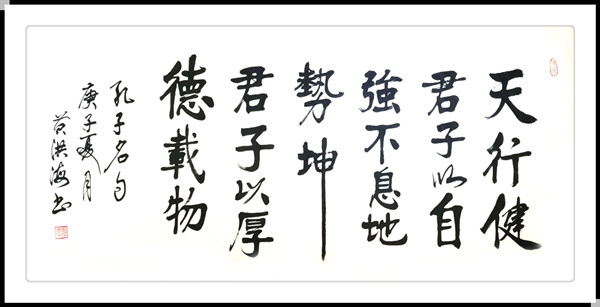 天行健
君子以自
強不息地
勢坤
君子以厚
德載物
孔子名句
庚子夏月
黄洪海书